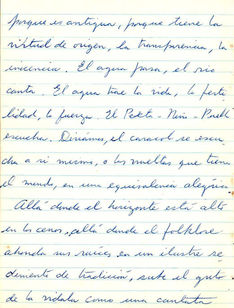 porque es antigua, porque tiene la
virtud de origen, la transparencia, la
inocencia. El agua pasa, el río
canta. El agua trae la vida, la ferti
lidad, la fuerza. El Poeta - Niño - Pueblo
escucha. Diríamos, el caracol se escu
cha a sí mismo, o los muebles que tiene
el mundo, en una equivalencia alegórica.
Allá donde el horizonte está alto
en los cerros, allá donde el folklore
ahonda sus raíces en un ilustre se
dimento de tradición, sube el grito
de la vidala como una cantata